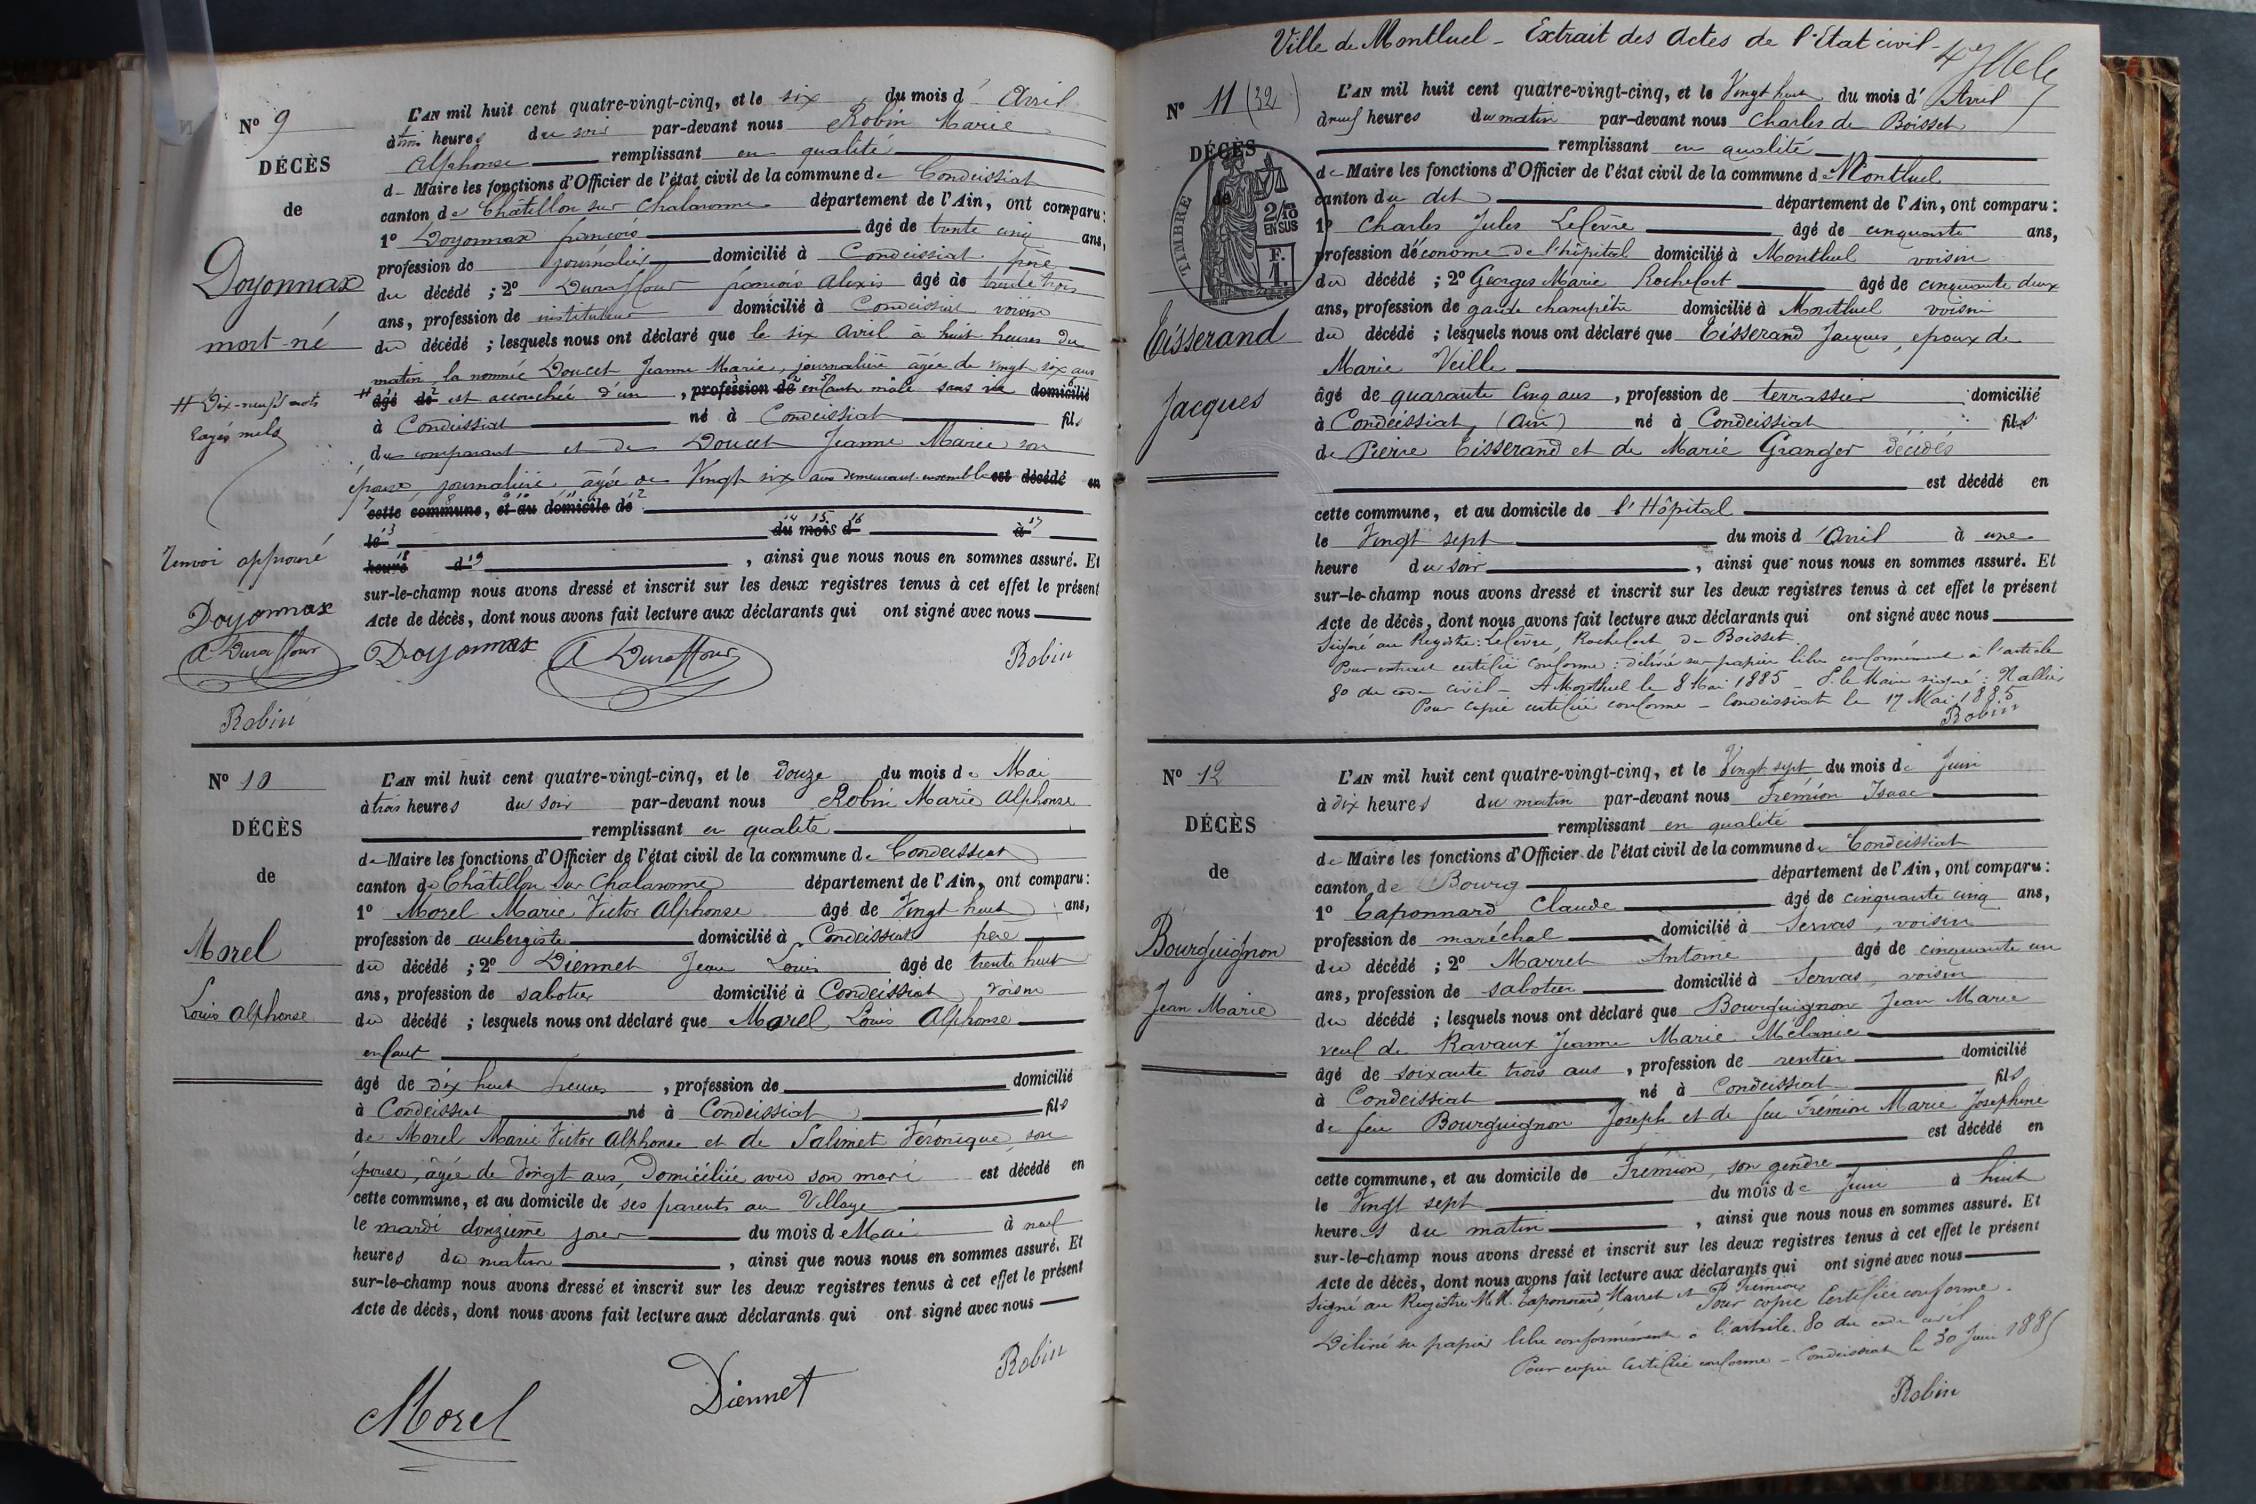 N° 9
DÉCÈS
de
Doyonnax
mort-né
# Dix-neuf mots
rayés nuls
renvoi approuvé
Doyonnax
A Duraffour
Robin
L'AN mil huit cent quatre-vingt-cinq, et le six du mois d' Avril
à trois heures du soir par-devant nous Robin Marie
Alphonse remplissant en qualité
de Maire les fonctions d'Officier de l'état civil de la commune de Condeissiat
canton de Châtillon sur Chalaronne département de l'Ain, ont comparu :
1° Doyonnax françois âgé de trente cinq ans,
profession de journalier domicilié à Condeissiat père
du décédé ; 2° Duraffour françois Alexis âgé de trente trois
ans, profession de instituteur domicilié à Condeissiat voisin
du décédé ; lesquels nous ont déclaré que le six Avril à huit heures du
matin, la nommée Doucet Jeanne Marie, journalière âgée de vingt six ans
# âgé de est accouchée d'un , profession de enfant mâle sans vie domicilié
à Condeissiat né à Condeissiat fils
du comparant et de Doucet Jeanne Marie son
épouse, journalière âgée de Vingt six ans demeurant ensemble est décédé en
cette commune, et au domicile de
le du mois d à
heure d , ainsi que nous nous en sommes assuré. Et
sur-le-champ nous avons dressé et inscrit sur les deux registres tenus à cet effet le présent
Acte de décès, dont nous avons fait lecture aux déclarants qui ont signé avec nous
Doyonnax A Duraffour Robin
N° 10
DÉCÈS
de
Morel
Louis Alphonse
L'AN mil huit cent quatre-vingt-cinq, et le douze du mois de Mai
à trois heures du soir par-devant nous Robin Marie Alphonse
remplissant en qualité
de Maire les fonctions d'Officier de l'état civil de la commune de Condeissiat
canton de Châtillon sur Chalaronne département de l'Ain, ont comparu :
1° Morel Marie Victor Alphonse âgé de Vingt huit ans,
profession de aubergiste domicilié à Condeissiat père
du décédé ; 2° Diennet Jean Louis âgé de trente huit
ans, profession de sabotier domicilié à Condeissiat voisin
du décédé ; lesquels nous ont déclaré que Morel Louis Alphonse
enfant
âgé de dix huit heures , profession de domicilié
à Condeissiat né à Condeissiat fils
de Morel Marie Victor Alphonse et de Salimet Véronique son
épouse, âgée de Vingt ans, domiciliée avec son mari est décédé en
cette commune, et au domicile de ses parents au Village
le mardi douzième jour du mois de Mai à neuf
heures du matin , ainsi que nous nous en sommes assuré. Et
sur-le-champ nous avons dressé et inscrit sur les deux registres tenus à cet effet le présent
Acte de décès, dont nous avons fait lecture aux déclarants qui ont signé avec nous
Morel Diennet Robin
Ville de Montluel - Extrait des Actes de l'Etat civil -
N° 11 (32)
DÉCÈS
de
TIMBRE
2/10
EN SUS
F.
1.
Tisserand
Jacques
L'AN mil huit cent quatre-vingt-cinq, et le Vingt huit du mois d' Avril
à neuf heures du matin par-devant nous Charles de Boisset
remplissant en qualité
de Maire les fonctions d'Officier de l'état civil de la commune de Montluel
canton du dit département de l'Ain, ont comparu :
1° Charles Jules Lefèvre âgé de cinquante ans,
profession d'économe de l'hôpital domicilié à Montluel voisin
du décédé ; 2° Georges Marie Rochefort âgé de cinquante deux
ans, profession de garde champêtre domicilié à Montluel voisin
du décédé ; lesquels nous ont déclaré que Tisserand Jacques, époux de
Marie Veille
âgé de quarante cinq ans , profession de terrassier domicilié
à Condeissiat, (Ain) né à Condeissiat fils
de Pierre Tisserand et de Marie Granger décédés
est décédé en
cette commune, et au domicile de l'Hôpital
le Vingt sept du mois d'Avril à une
heure du soir , ainsi que nous nous en sommes assuré. Et
sur-le-champ nous avons dressé et inscrit sur les deux registres tenus à cet effet le présent
Acte de décès, dont nous avons fait lecture aux déclarants qui ont signé avec nous
Signé au Registre : Lefèvre, Rochefort de Boisset
Pour extrait certifié conforme : délivré sur papier libre conformément à l'article
80 du code civil - A Montluel le 8 Mai 1885 - P. le Maire signé : Nallier
Pour copie certifiée conforme - Condeissiat le 17 Mai 1885
Robin
N° 12
DÉCÈS
de
Bourguignon
Jean Marie
L'AN mil huit cent quatre-vingt-cinq, et le Vingt sept du mois de Juin
à dix heures du matin par-devant nous Frémion Isaac
remplissant en qualité
de Maire les fonctions d'Officier de l'état civil de la commune de Condeissiat
canton de Bourg département de l'Ain, ont comparu :
1° Taponnard Claude âgé de cinquante cinq ans,
profession de maréchal domicilié à Servas, voisin
du décédé ; 2° Marret Antoine âgé de cinquante un
ans, profession de sabotier domicilié à Servas, voisin
du décédé ; lesquels nous ont déclaré que Bourguignon Jean Marie
veuf de Ravaux Jeanne Marie Mélanie
âgé de soixante trois ans , profession de rentier domicilié
à Condeissiat né à Condeissiat fils
de feu Bourguignon Joseph et de feu Frémion Marie Josephine
est décédé en
cette commune, et au domicile de Frémion, son gendre
le Vingt sept du mois de Juin à huit
heures du matin , ainsi que nous nous en sommes assuré. Et
sur-le-champ nous avons dressé et inscrit sur les deux registres tenus à cet effet le présent
Acte de décès, dont nous avons fait lecture aux déclarants qui ont signé avec nous
Signé au Registre M.M. Taponnard, Marret et Frémion Pour copie Certifiée conforme.
Délivré sur papier libre conformément à l'article 80 du code civil
Pour copie certifiée conforme - Condeissiat le 30 Juin 1885
Robin